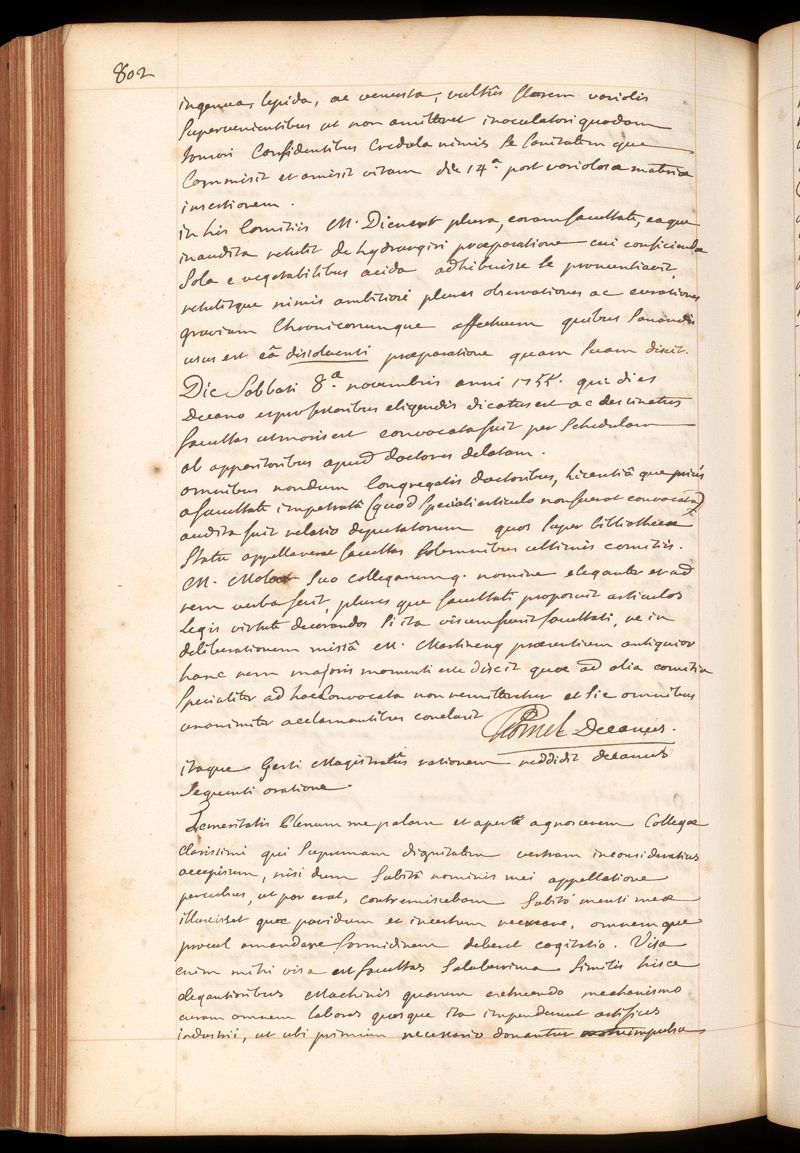 802
ingenua, lepida, ac venusta, vultûs florem variolis
supervenientibus ut non amitteret inoculatori quodam
Confidentibus Credula nimis se Sanitatem que
Commisit et amisit vitam die 14.a post variolosa materiæ
insertionem.
in his Comitiis M. Dienert plura, coram facultate, eaque
inaudita retulit de hydrargiri præparatione cui conficiendæ
sola e vegetabilibus acida adhibuisse se pronuntiavit,
retulitque nimis ambitiosè plures observationes ac curationes
gravium Chronicorumque affectuum quibus sanandis
usus est eâ dissolventi præparatione quam suam dixit.
Die Sabbati 8.a novembris anni 1755. qui dies
Decano et professoribus eligendis dicatus est ac destinatus
facultas ut moris est convocata fuit per Schedulam
ab apparitoribus apud doctores delatam.
omnibus nondum Congregatis doctoribus, licentiâ que priùs
a facultate impetratâ (quod speciali articulo non fuerat convocata)
audita fuit relatio deputatorum quos super bibliothecæ
statu appellaverat facultas solemnibus ultimis comitiis.
M. suo collegarumq. nomine eleganter et ad
rem verba fecit, plures que facultati proposuit articulos
legis virtute decorandos si ita visum fuerit facultati, re in
deliberationem missâ M. Martinenq præsentium antiquior
hanc rem majoris momenti esse dixit quæ ad alia comitia
specialiter ad hoc Convocata non remitteretur et sic omnibus
unanimiter acclamantibus conclusit Decanus.
itaque Gesti Magistratûs rationem reddidit decanus
sequenti oratione.
Temeritatis Plenum me palam et apertè agnoscerem Collegæ
clarissimi qui supremam dignitatem vestram inconsideratius
accepissem, nisi dum subitâ nominis mei appellatione
perculsus, ut par erat, contremiscebam subitò menti meæ
illuxisset quæ pavidum et incertum recreare, omnemque
procul amandare formidinem deberet cogitatio. Visa
enim mihi visa est facultas saluberrima similis hisce
elegantioribus Machinis quarum extruendo mechanismo
curam omnem labores quosque ita impenderunt artifices
industrii, ut ubi primùm necessario donantur impulsu